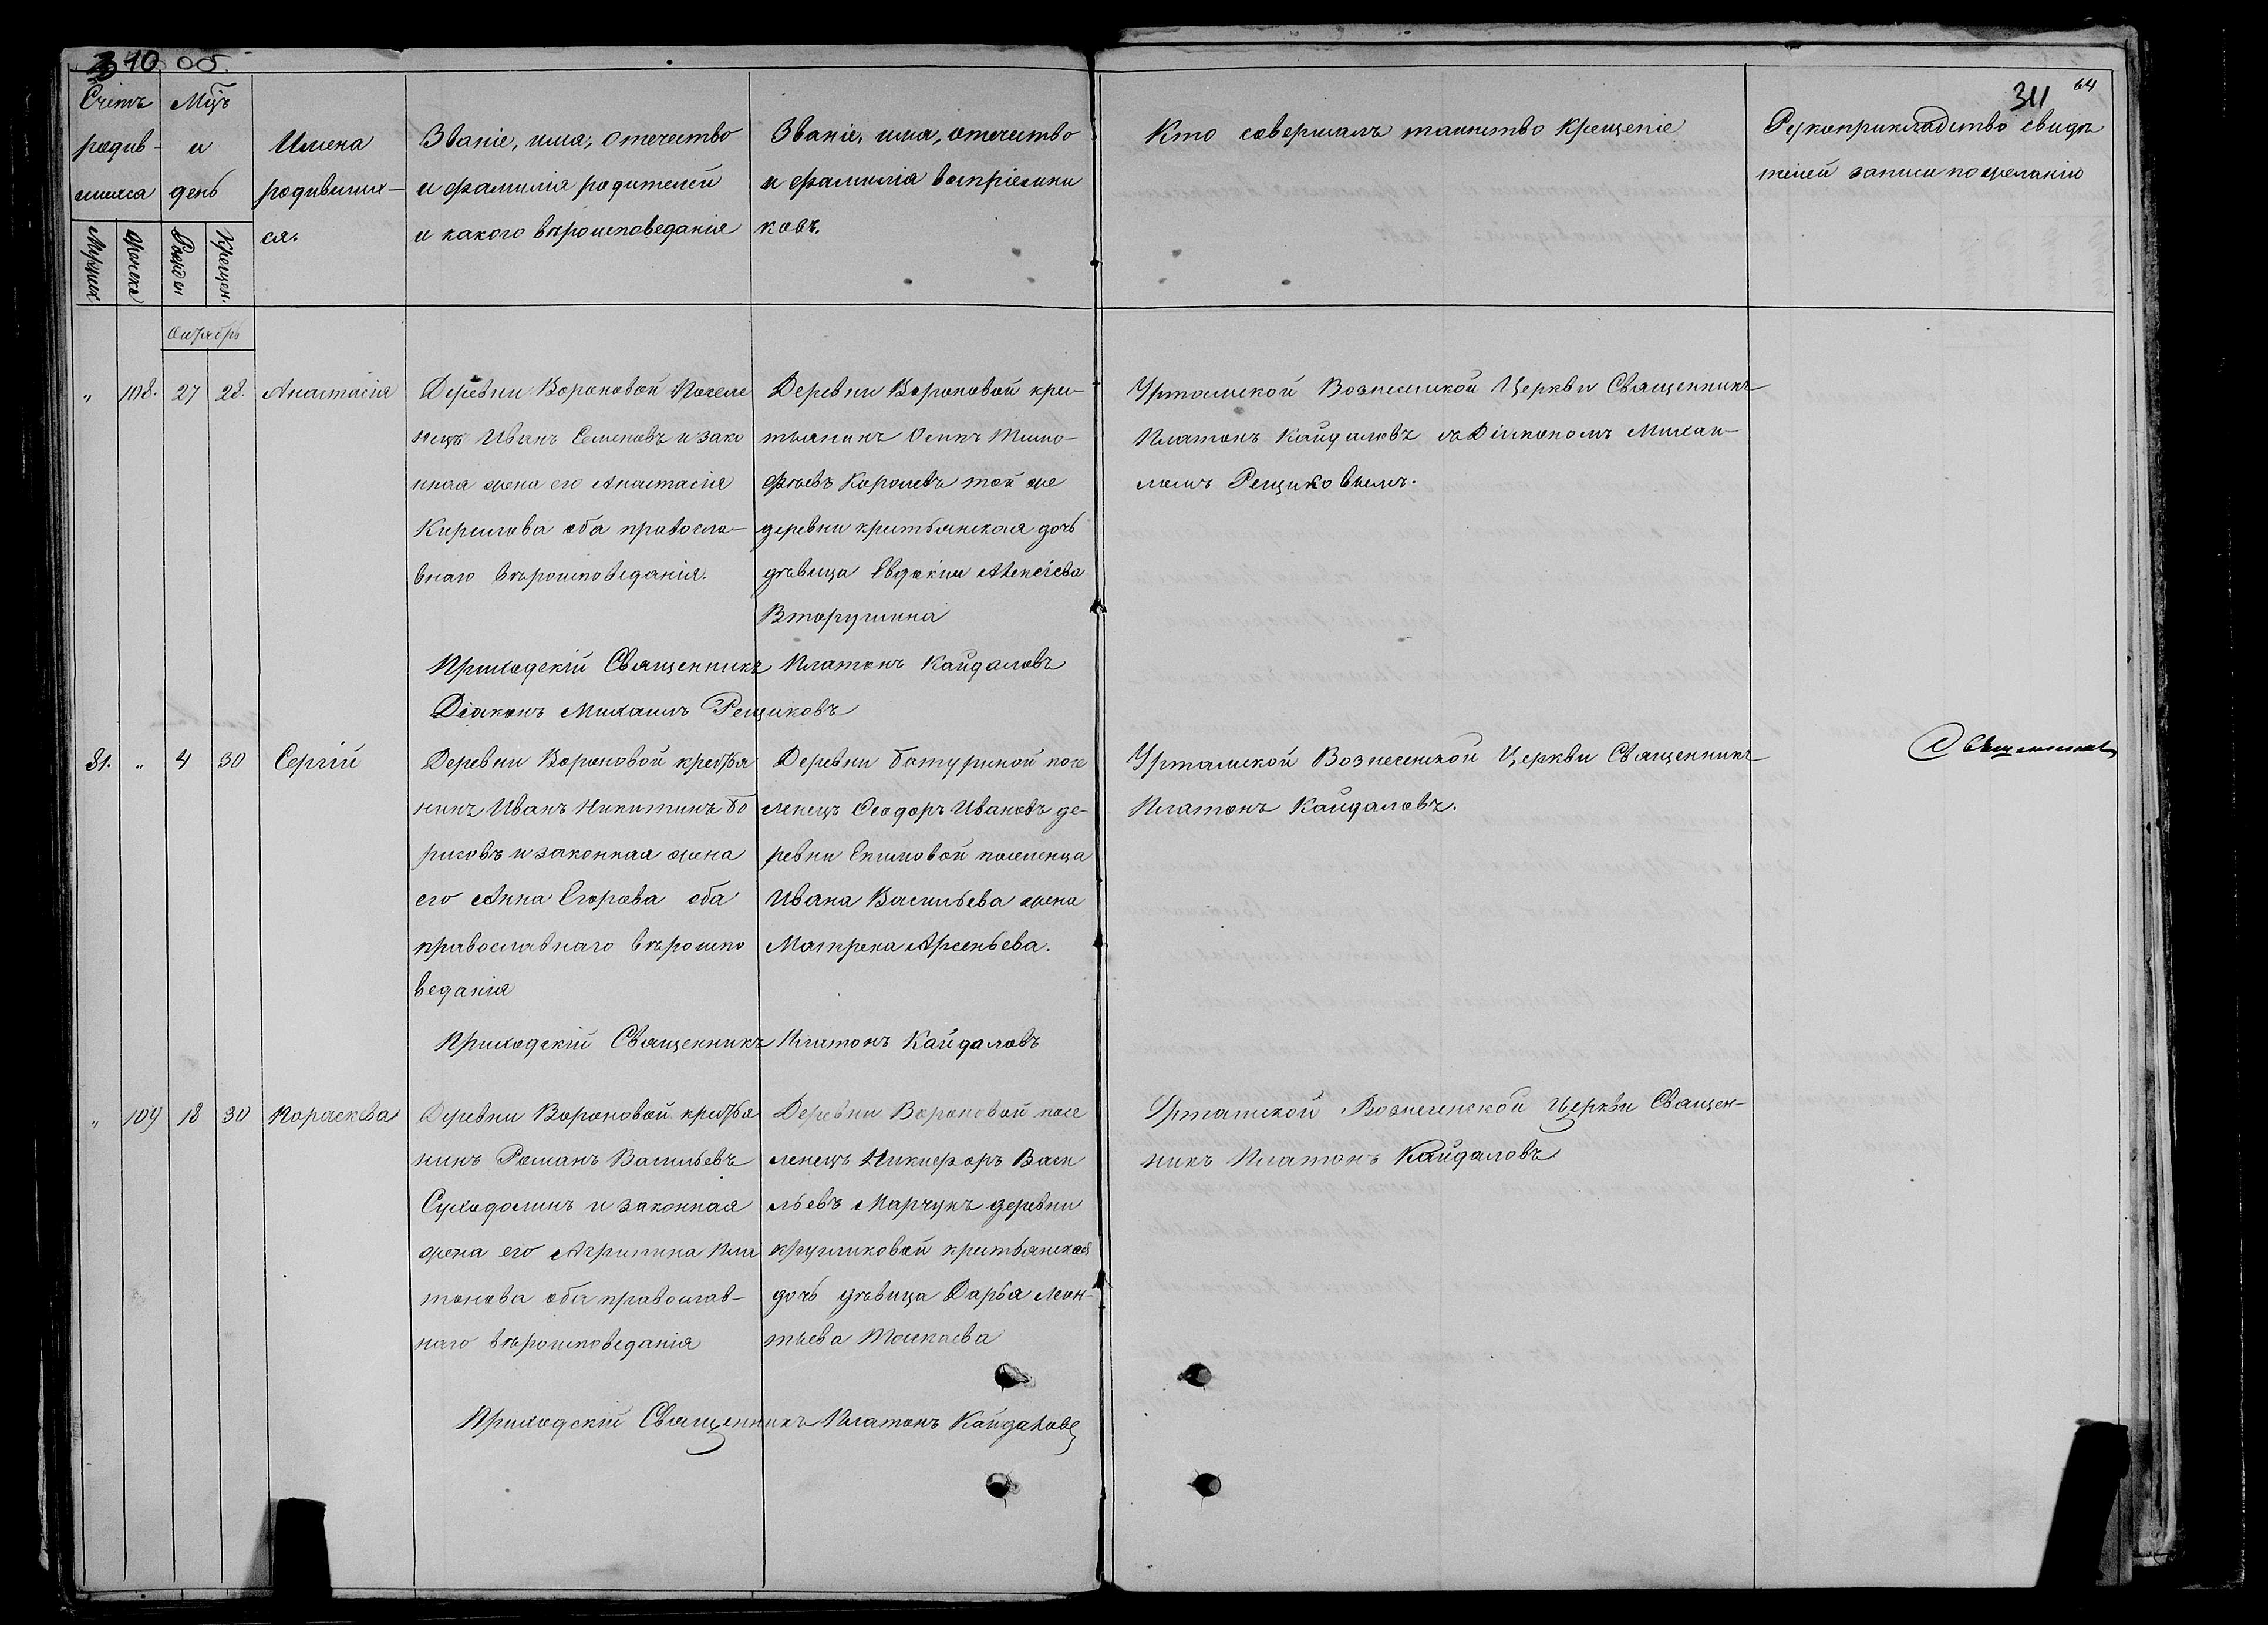 310
311
64
Счетъ родив-шихся
Мужеск
Женска
Мцъ и день
Рожден
Крещен.
Имена
родивших-
ся.
Званіе, имя, отечество
и фамилія родителей
и какого вѣроисповеданія
Званіе, имя, отечество
и фамилія воспріемни
ковъ.
Кто совершалъ таинство крещеніе
Рукоприкладство свидѣ
телей записи по желанію
Октябрь
" 108. 27 28. Анастасія
Деревни Вороновой Поселе
нецъ Иванъ Семеновъ и зако
нная жена его Анастасія
Кирилова оба правосла-
внаго вѣроисповеданія.
Деревни Вороновой кре-
стьянинъ Осипъ Тимо-
фѣевъ Королевъ той же
деревни крестьянская дочь
дѣвица Евдокія Алексіева
Вторушина
Уртамской Вознесенской Церкви Священникъ
Платонъ Кайдаловъ съ Діакономъ Михаи-
ломъ Рещиковымъ.
Приходскій Священникъ Платонъ Кайдаловъ
Діаконъ Михаилъ Рещиковъ
81. " 4 30 Сергій
Деревни Вороновой крестья
нинъ Иванъ Никитинъ Бо
рисовъ и законная жена
его Анна Егорова оба
православнаго вѣроиспо
веданія
Деревни Батуриной посе
ленецъ Ѳеодоръ Ивановъ де-
ревни Екимовой поселенца
Ивана Васильева жена
Матрена Арсеньева.
Уртамской Вознесенской Церкви Священникъ
Платонъ Кайдаловъ.
Приходскій Священникъ Платонъ Кайдаловъ
" 109 18 30 Параскева
Деревни Вороновой крестья
нинъ Романъ Васильевъ
Суходолинъ и законная
жена его Агрипина Пла
тонова оба православ-
наго вѣроисповеданія
Деревни Вороновой посе
ленецъ Никифоръ Васи
льевъ Марчукъ деревни
кругликовой крестьянская
дочь дѣвица Дарья Леон-
тьева Токаева
Уртамской Вознесенской Церкви Священ-
никъ Платонъ Кайдаловъ
Приходскій Священникъ Платонъ Кайдаловъ